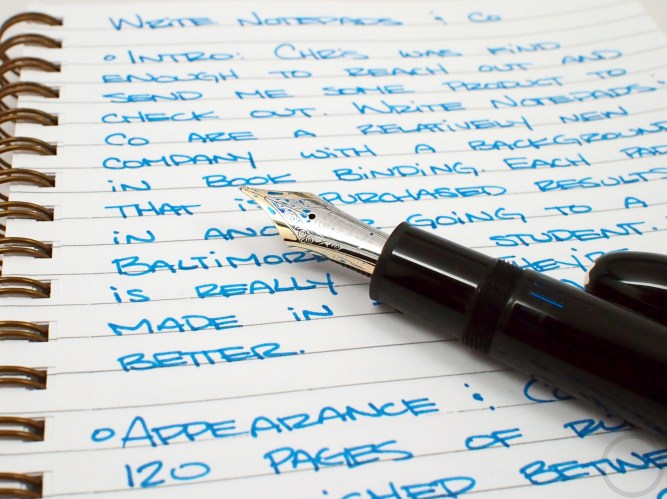 WRITE NOTEPADS & CO
INTRO: CHRIS WAS KIND
ENOUGH TO REACH OUT AND
SEND ME SOME PRODUCT TO
CHECK OUT. WRITE NOTEPADS &
CO ARE A RELATIVELY NEW
COMPANY WITH A BACKGROUND
IN BOOK BINDING. EACH PAD
THAT IS PURCHASED RESULTS
IN GOING TO A
STUDENT.
IS REALLY
MADE IN
BETTER.
APPEARANCE:
120 PAGES OF
BETWE